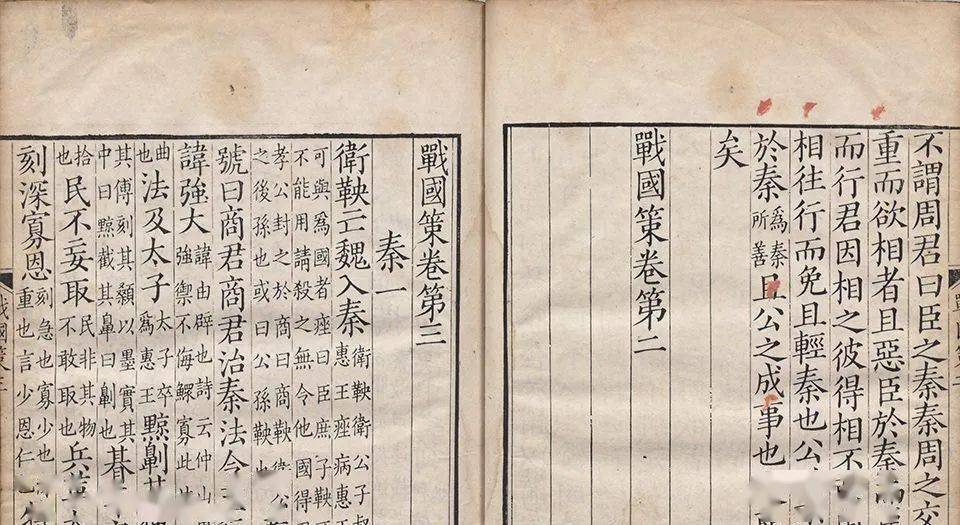 不謂周君曰臣之秦秦周之交
重而欲相者且惡臣於秦而
而行君因相之彼得相不
相往行而免且輕秦也公
於秦為秦所善且公之成事也
矣
戰國策卷第二
戰國策卷第三
秦一
衛鞅亡魏入秦衛鞅衛公子叔
惠王痤病惠王
可與爲國者痤曰臣庶子鞅
不能用請殺之無令他國得
孝公封之於商曰商鞅衛公
之後孫也或曰公孫鞅
號曰商君商君治秦法令
諱強大諱由辟也詩云仲山
強禦不侮鰥寡此
曲也法及太子太子卒爲惠王黥劓其
其傅刻其顙以墨實其
中曰黥截其鼻曰劓也朞
拾也民不妄取民非其物不敢取也兵革
刻深寡恩刻急也寡少也
重也言少恩仁也
戰國策三